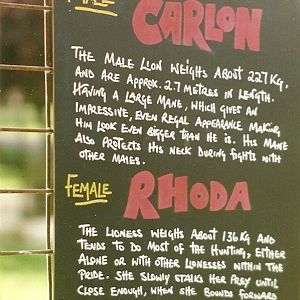 MALE
CARLON
THE MALE LION WEIGHS ABOUT 227 KG,
AND ARE APPROX. 2.7 METRES IN LENGTH.
HAVING A LARGE MANE, WHICH GIVES AN
IMPRESSIVE, EVEN REGAL APPEARANCE MAKING
HIM LOOK EVEN BIGGER THAN HE IS. HIS MANE
ALSO PROTECTS HIS NECK DURING FIGHTS WITH
OTHER MALES.
FEMALE
RHODA
THE LIONESS WEIGHS ABOUT 136 KG AND
TENDS TO DO MOST OF THE HUNTING, EITHER
ALONE OR WITH OTHER LIONESSES WITHIN THE
PRIDE. SHE SLOWLY STALKS HER PREY UNTIL
CLOSE ENOUGH, WHEN SHE BOUNDS FORWARD